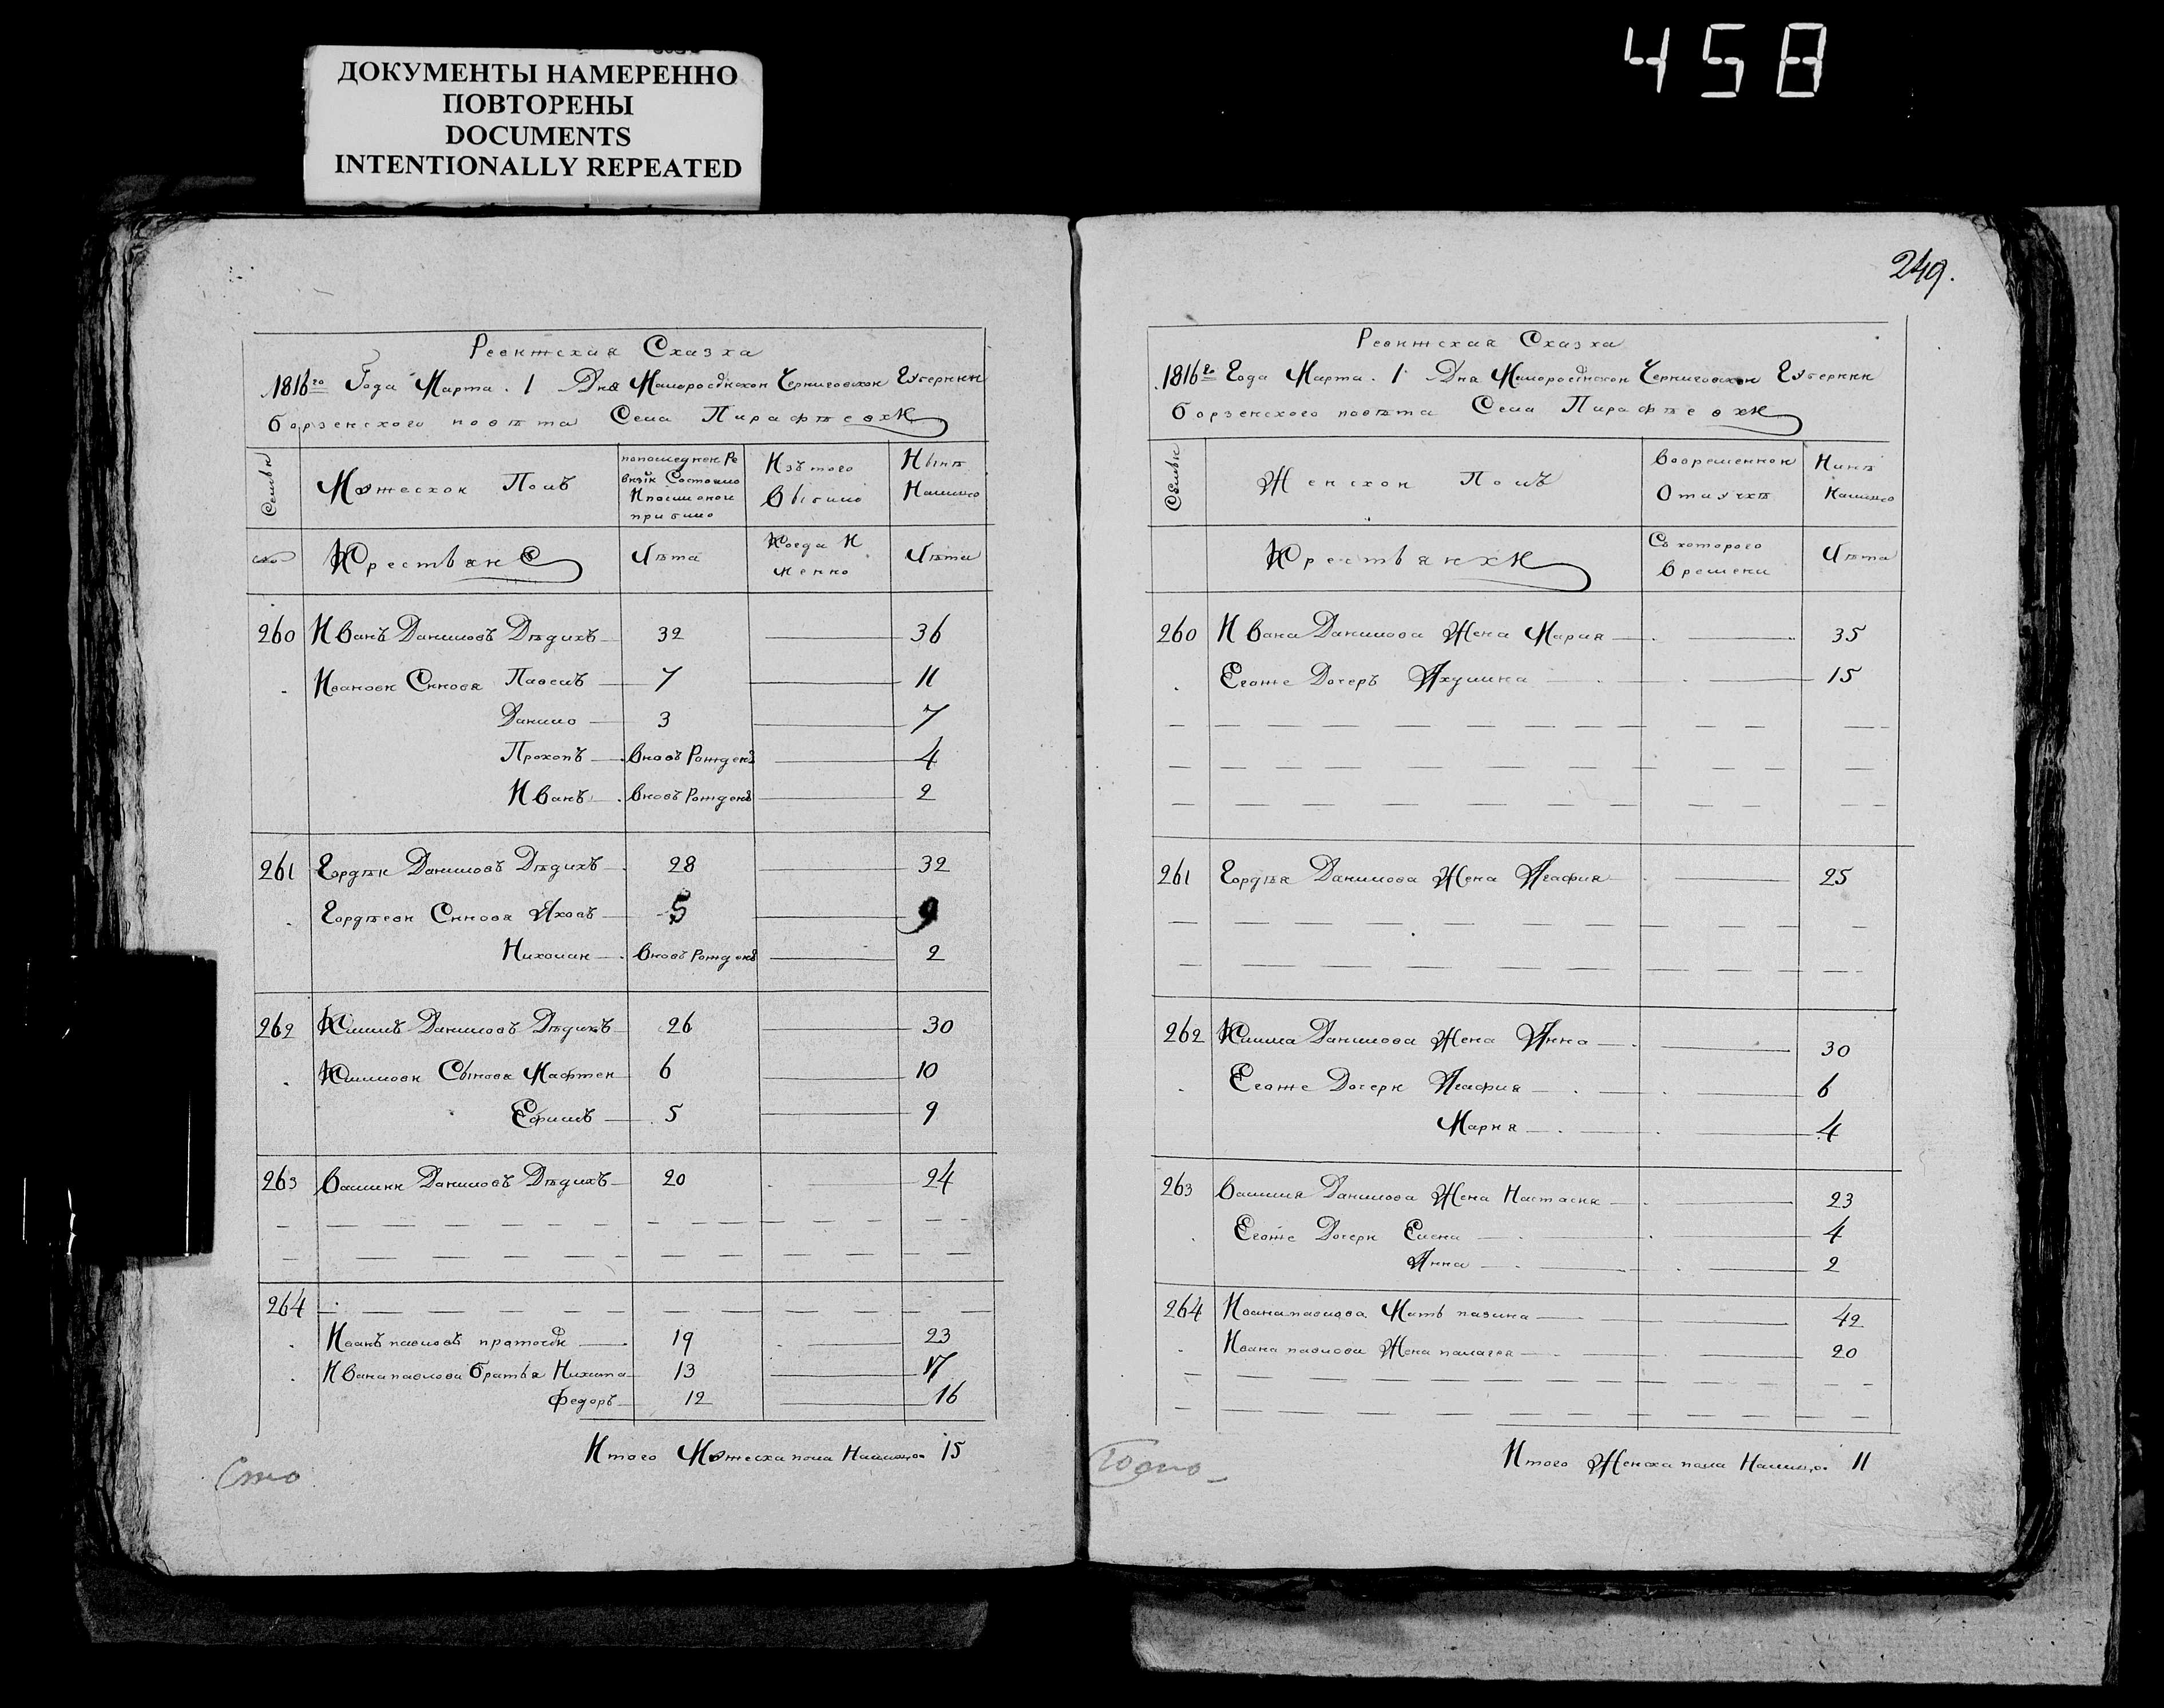 458
ДОКУМЕНТЫ НАМЕРЕННО
ПОВТОРЕНЫ
DOCUMENTS
INTENTIONALLY REPEATED
Ревижская Сказка
1816го Года Марта 1 Дня Малоросійской Черниговской Губернии
борзенского повѣта Села Парафѣевки
Семьи
Мужеской Полъ
попоследней Ре
визіи Состояло
Ипосле оной
прибыло
Изъ того
Выбыло
Нынѣ
Налицо
Крестьяне
Лѣта
Когда И
менно
Лѣта
260 Иванъ Даниловъ Дѣдикъ 32 36
Ивановы Сынова Павелъ 7 11
Данило 3 7
Прокопъ вновь Рожденъ 4
Иванъ вновь Рожденъ 2
261 Гордѣй Даниловъ Дѣдикъ 28 32
Гордѣевы Сынова Яковъ 5 9
Николай вновь Рожденъ 2
262 Климъ Даниловъ Дѣдикъ 26 30
Климовы Сынова Мафтей 6 10
Ефимъ 5 9
263 Василий Даниловъ Дѣдикъ 20 24
264
Иванъ павловъ 19 23
Ивана павлова братья Никита 13 17
федоръ 12 16
Итого Мужеска пола Налицо 15
249.
Ревижская Сказка
1816го Года Марта 1 Дня Малоросійской Черниговской Губернии
борзенского повѣта Села Парафѣевки
Семьи
Женской Полъ
Вовременной
Отлучкѣ
Нинѣ
Налицо
Крестьянки
Съ которого
Времени
Лѣта
260 Ивана Данилова Жена Мария 35
Егоже Дочеръ Акулина 15
261 Гордѣя Данилова Жена Агафия 25
262 Клима Данилова Жена Анна 30
Егоже Дочери Агафия 6
Мария 4
263 Василия Данилова Жена Настасия 23
Егоже Дочери Елена 4
Анна 2
264 Ивана павлова Мать 42
Ивана павлова Жена палагея 20
Итого Женска пола Налицо 11